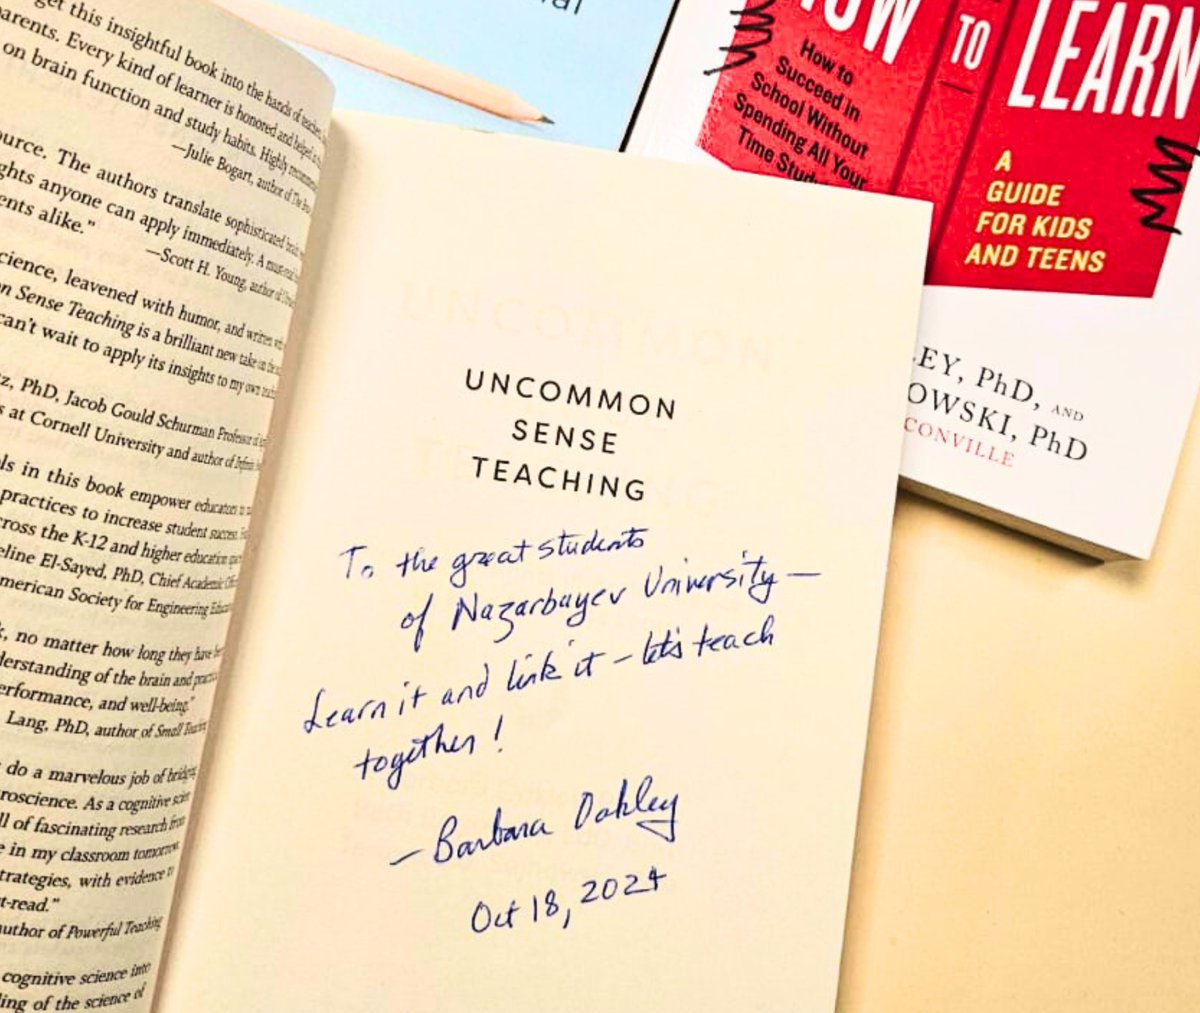 get this insightful book into the hands of
parents. Every kind of learner is honored and helped
on brain function and study habits. Highly
—Julie Bogart, author of The
The authors translate sophisticated
anyone can apply immediately. A
alike."
—Scott H. Young, author of
leavened with humor, and written
Sense Teaching is a brilliant new take on the
can't wait to apply its insights to my own
PhD, Jacob Gould Schurman Professor of
at Cornell University and author of
in this book empower educators to
practices to increase student success.
the K-12 and higher education
El-Sayed, PhD, Chief Academic
American Society for Engineering
no matter how long they have
of the brain and
and well-being."
Lang, PhD, author of Small Teaching
do a marvelous job of bridging
As a cognitive
of fascinating research from
in my classroom tomorrow.
with evidence
author of Powerful Teaching
cognitive science into
of the science of
UNCOMMON
SENSE
TEACHING
To the great students
of Nazarbayev University —
Learn it and link it – let's teach
together!
— Barbara Oakley
Oct 18, 2024
HOW TO LEARN
How to
Succeed in
School Without
Spending All Your
Time
A
GUIDE
FOR KIDS
AND TEENS
LEY, PhD, AND
OWSKI, PhD
CONVILLE